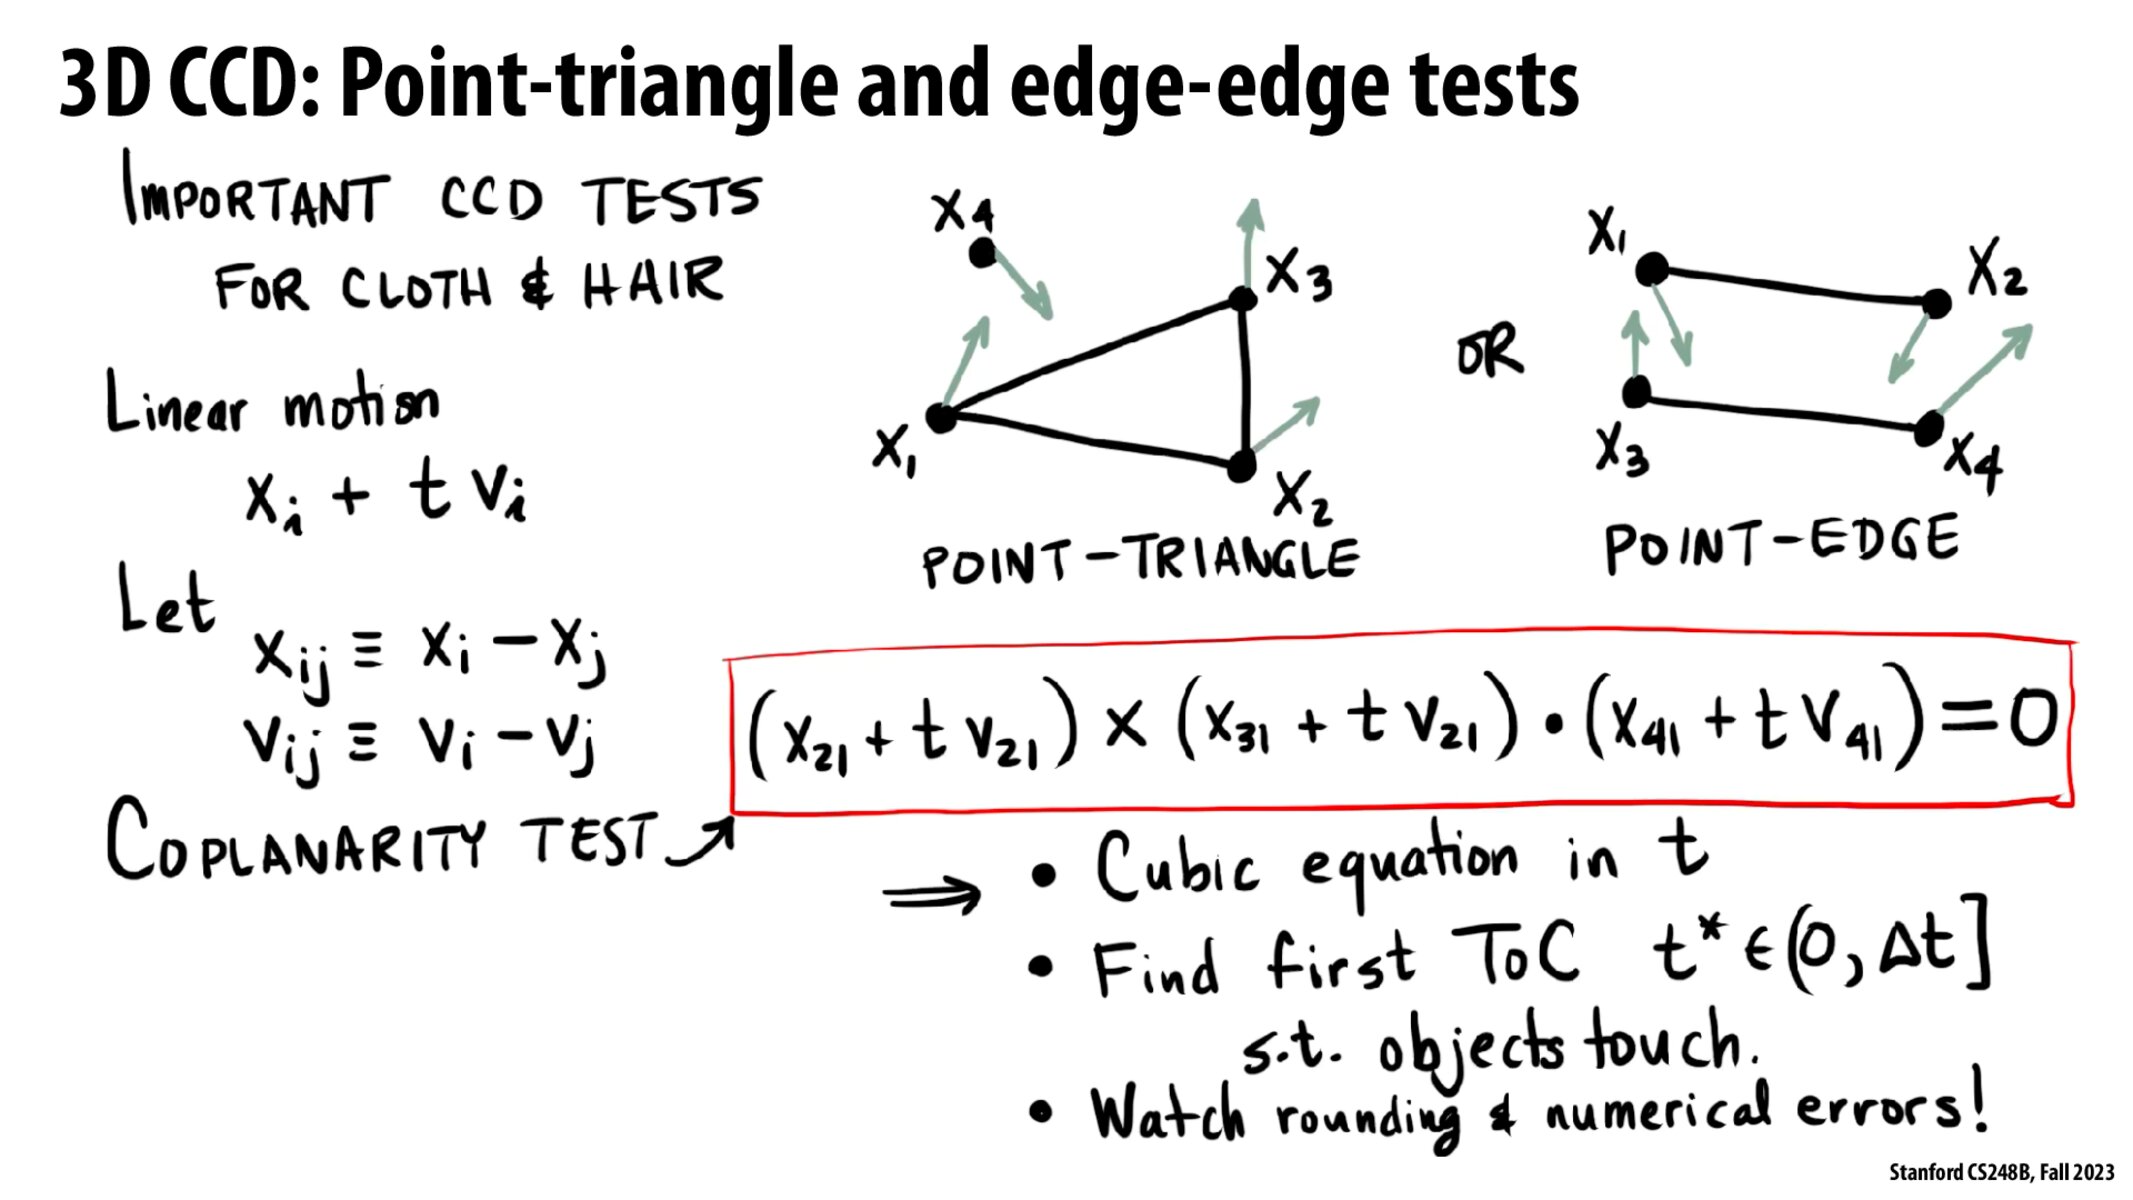 3D CCD: Point-triangle and edge-edge tests
IMPORTANT CCD TESTS
FOR CLOTH & HAIR
Linear motion
xᵢ + t vᵢ
Let
xᵢⱼ ≡ xᵢ − xⱼ
vᵢⱼ ≡ vᵢ − vⱼ
COPLANARITY TEST
x₄
x₃
x₁
x₂
POINT-TRIANGLE
OR
x₁
x₂
x₃
x₄
POINT-EDGE
(x₂₁ + t v₂₁) × (x₃₁ + t v₂₁) • (x₄₁ + t v₄₁) = 0
⇒ • Cubic equation in t
• Find first ToC t* ∈ (0, Δt]
s.t. objects touch.
• Watch rounding & numerical errors!
Stanford CS248B, Fall 2023